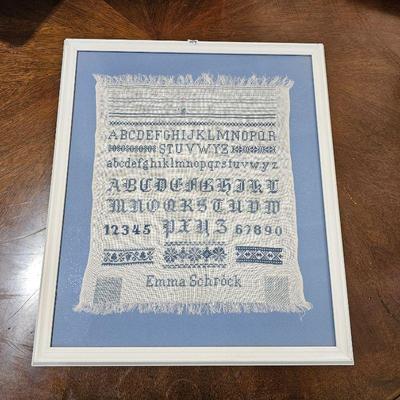 ABCDEFGHIJKLMNOPQR
STUVWYZ
abcdefghiklmnopqrstuvw.y.z
ABCDEFGHIKL
MNOPQRSTUVW
12345 PXYZ 67890
Emma Schrock